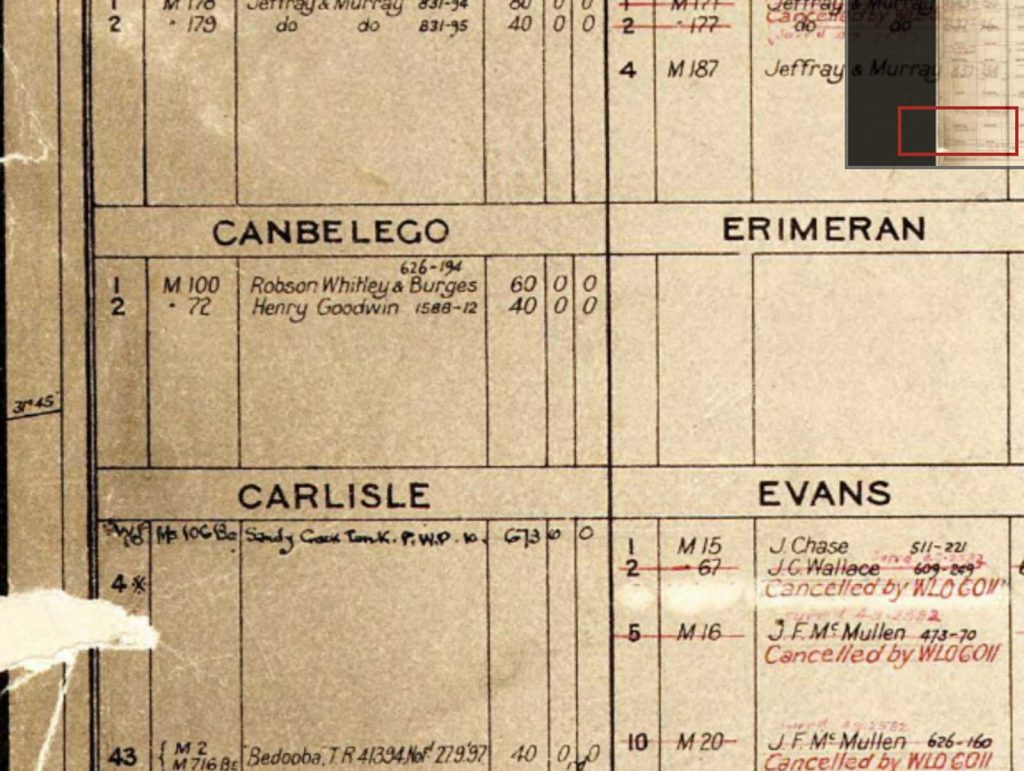 1 M 178 Jeffray & Murray 831-94 80 0 0
2 " 179 do do 831-95 40 0 0
CANBELEGO
626-194
1 M 100 Robson Whitley & Burges 60 0 0
2 " 72 Henry Goodwin 1588-12 40 0 0
31°45'
CARLISLE
Sandy Creek Tank. P.W.P. 10. 673 0 0
4*
43 { M 2 "Bedooba," T.R 41394, Notd 27.9.'97 40 0 0
M 716 Bc
1 M 171 Jeffray & Murray
Cancelled by
2 " 177 do do
4 M 187 Jeffray & Murray
ERIMERAN
EVANS
1 M 15 J. Chase 511-221
2 " 67 J.C. Wallace 609-269
Cancelled by WLOGO11
5 M 16 J. F. Mc Mullen 473-70
Cancelled by WLOGO11
10 M 20 J. F. Mc Mullen 626-160
Cancelled by WLOGO11